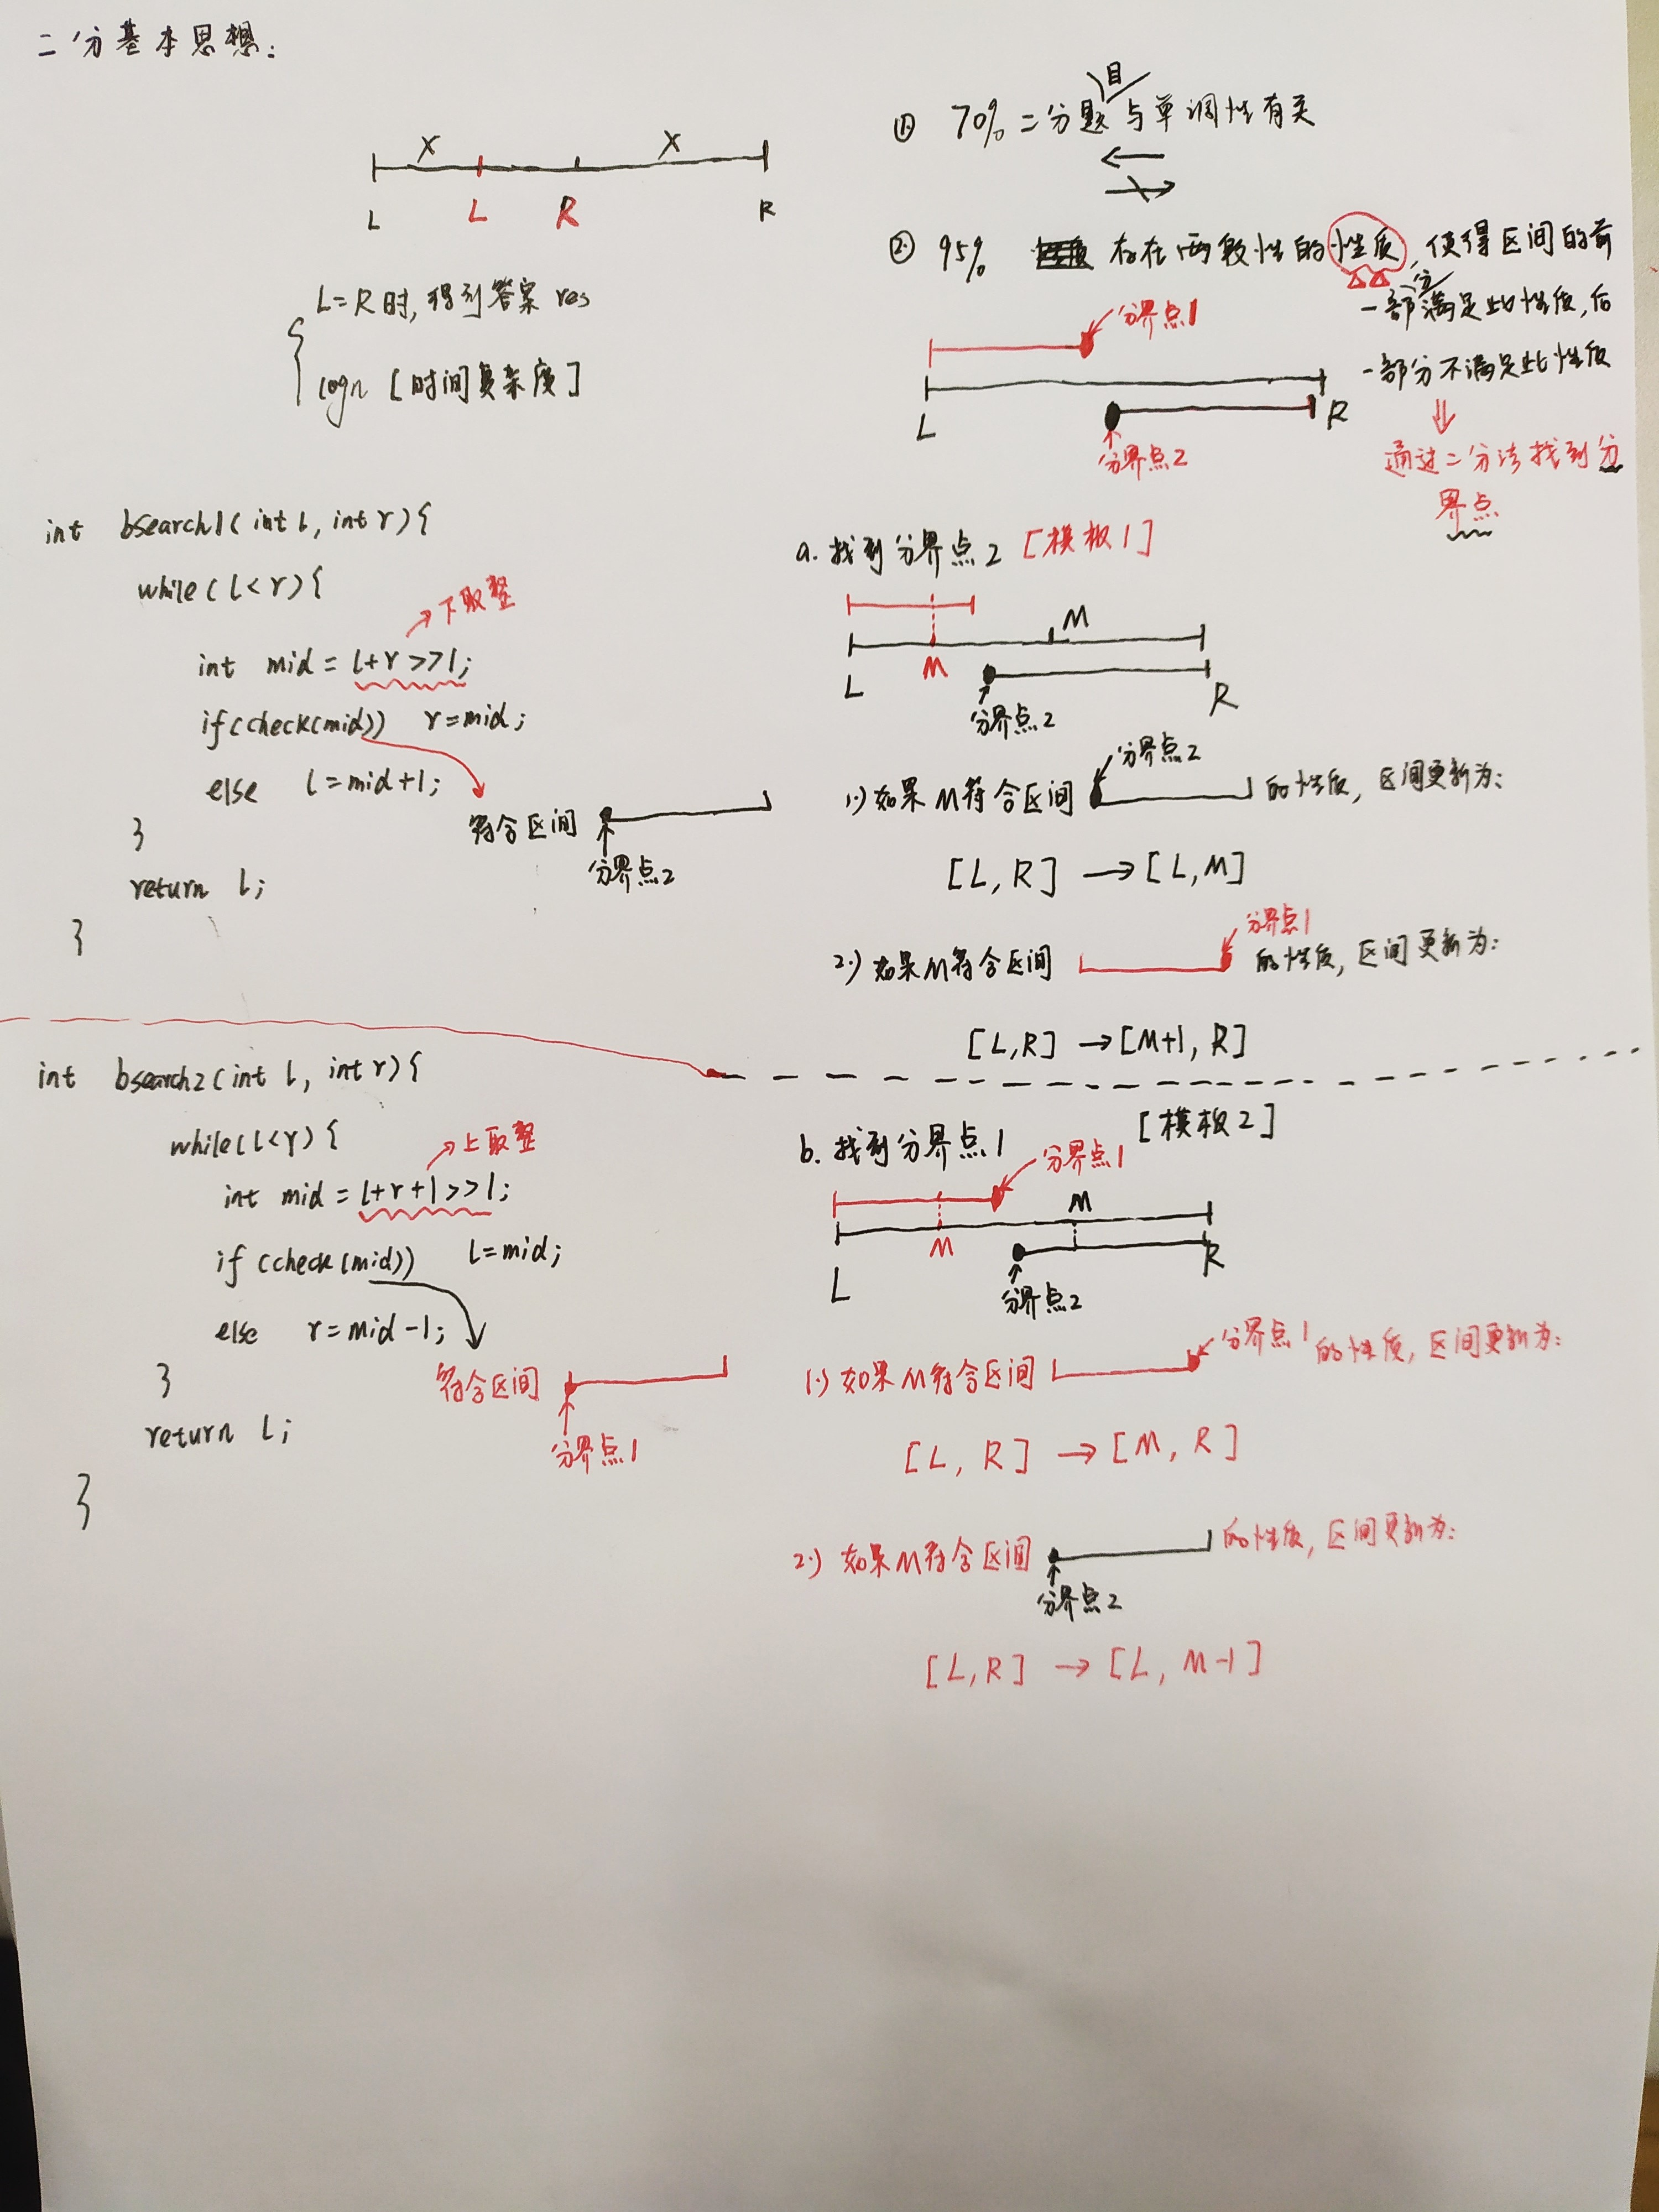 二分基本思想:
X X
L L R R
L=R时,得到答案 res
logn [时间复杂度]
① 70% 二分题目与单调性有关
② 95% 存在两段性的性质,使得区间的前
一部分满足此性质,后
一部分不满足此性质
通过二分法找到分
界点
分界点1
L R
分界点2
int bsearch1(int l, int r){
while(l<r){
下取整
int mid = l+r>>1;
if(check(mid)) r=mid;
else l=mid+1;
符合区间
分界点2
}
return l;
}
a. 找到分界点2 [模板1]
M
M
L R
分界点2
1.) 如果M符合区间 分界点2 的性质, 区间更新为:
[L, R] → [L, M]
2.) 如果M符合区间 分界点1 的性质, 区间更新为:
[L, R] → [M+1, R]
int bsearch2(int l, int r){
while(l<r){
上取整
int mid = l+r+1>>1;
if(check(mid)) l=mid;
else r=mid-1;
}
符合区间
分界点1
return l;
}
b. 找到分界点1 [模板2]
分界点1
M
M
L R
分界点2
1.) 如果M符合区间 分界点1 的性质, 区间更新为:
[L, R] → [M, R]
2.) 如果M符合区间 的性质, 区间更新为:
分界点2
[L, R] → [L, M-1]